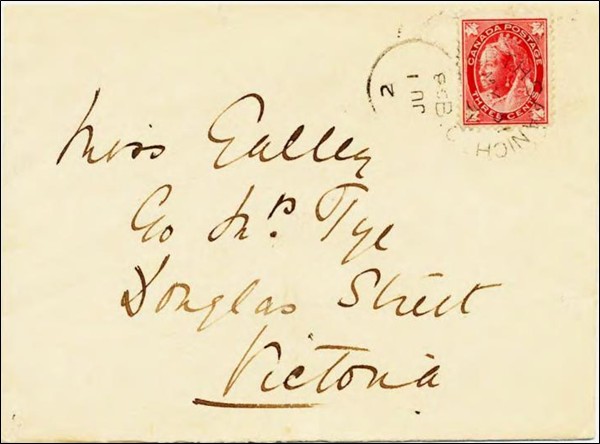 CANADA POSTAGE
THREE CENTS
2
JU 1
98
Miss Galley
Co Mrs. Tye
Douglas Street
Victoria